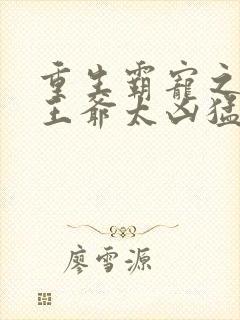 重生霸寵之
王爺太凶猛
廖雪源